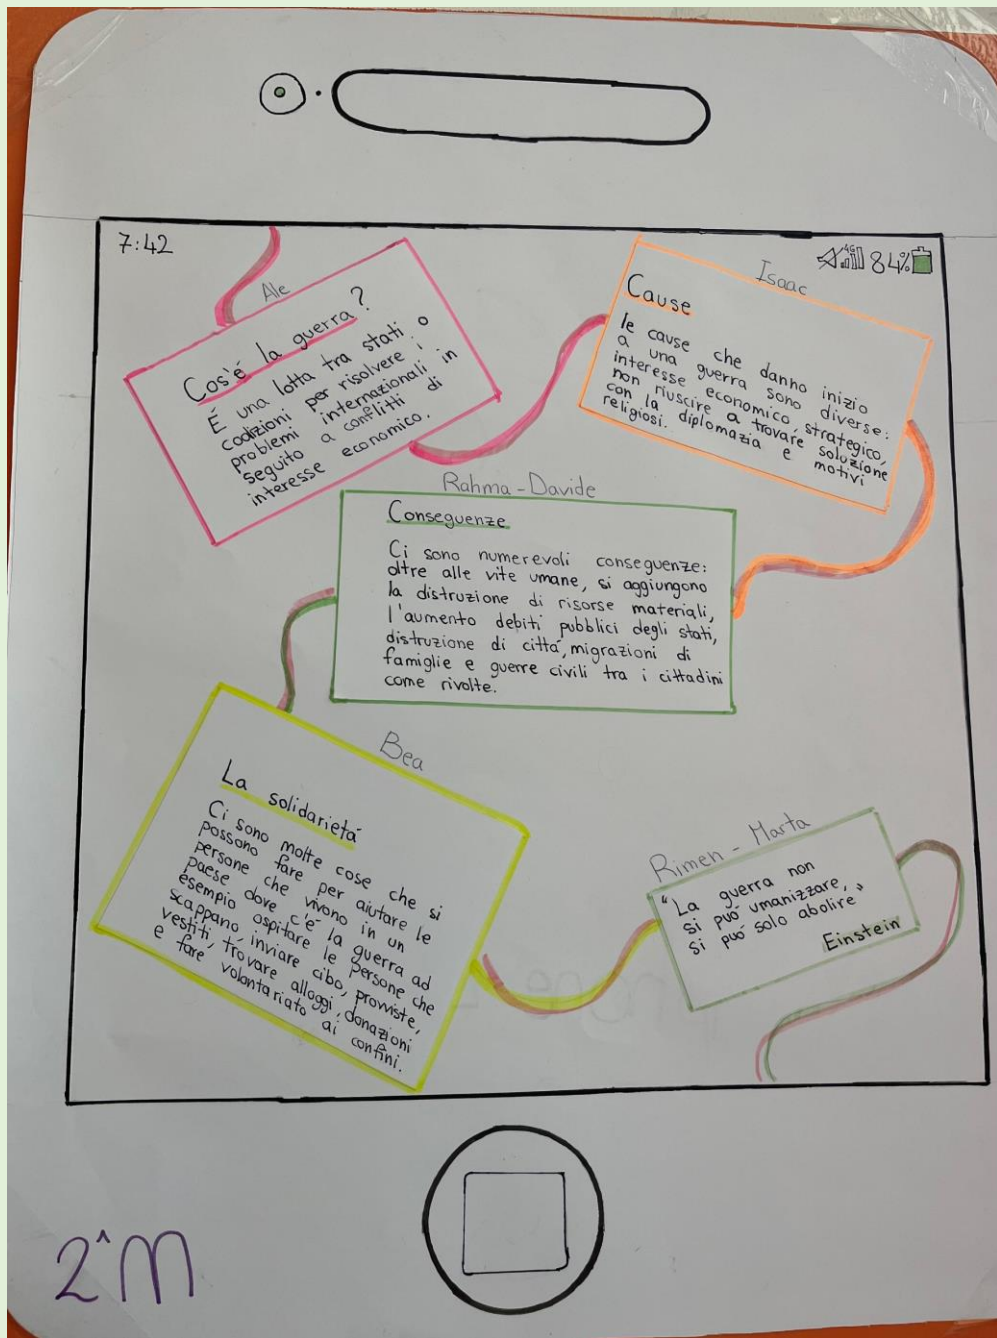 7:42
4G
84%
Ale
Cos'é la guerra?
É una lotta tra stati o
coalizioni per risolvere i
problemi internazionali in
seguito a conflitti di
interesse economico.
Isaac
Cause
le cause che danno inizio
a una guerra sono diverse:
interesse economico, strategico,
non riuscire a trovare soluzione
con la diplomazia e motivi
religiosi.
Rahma-Davide
Conseguenze
Ci sono numerevoli conseguenze:
oltre alle vite umane, si aggiungono
la distruzione di risorse materiali,
l'aumento debiti pubblici degli stati,
distruzione di cittá, migrazioni di
famiglie e guerre civili tra i cittadini
come rivolte.
Bea
La solidarietá
Ci sono molte cose che si
possono fare per aiutare le
persone che vivono in un
paese dove c'é la guerra ad
esempio ospitare le persone che
scappano, inviare cibo, provviste,
vestiti, trovare alloggi, donazioni
e fare volontariato ai confini.
Rimen - Marta
"La guerra non
si puó umanizzare,
si puó solo abolire"
Einstein
2^M